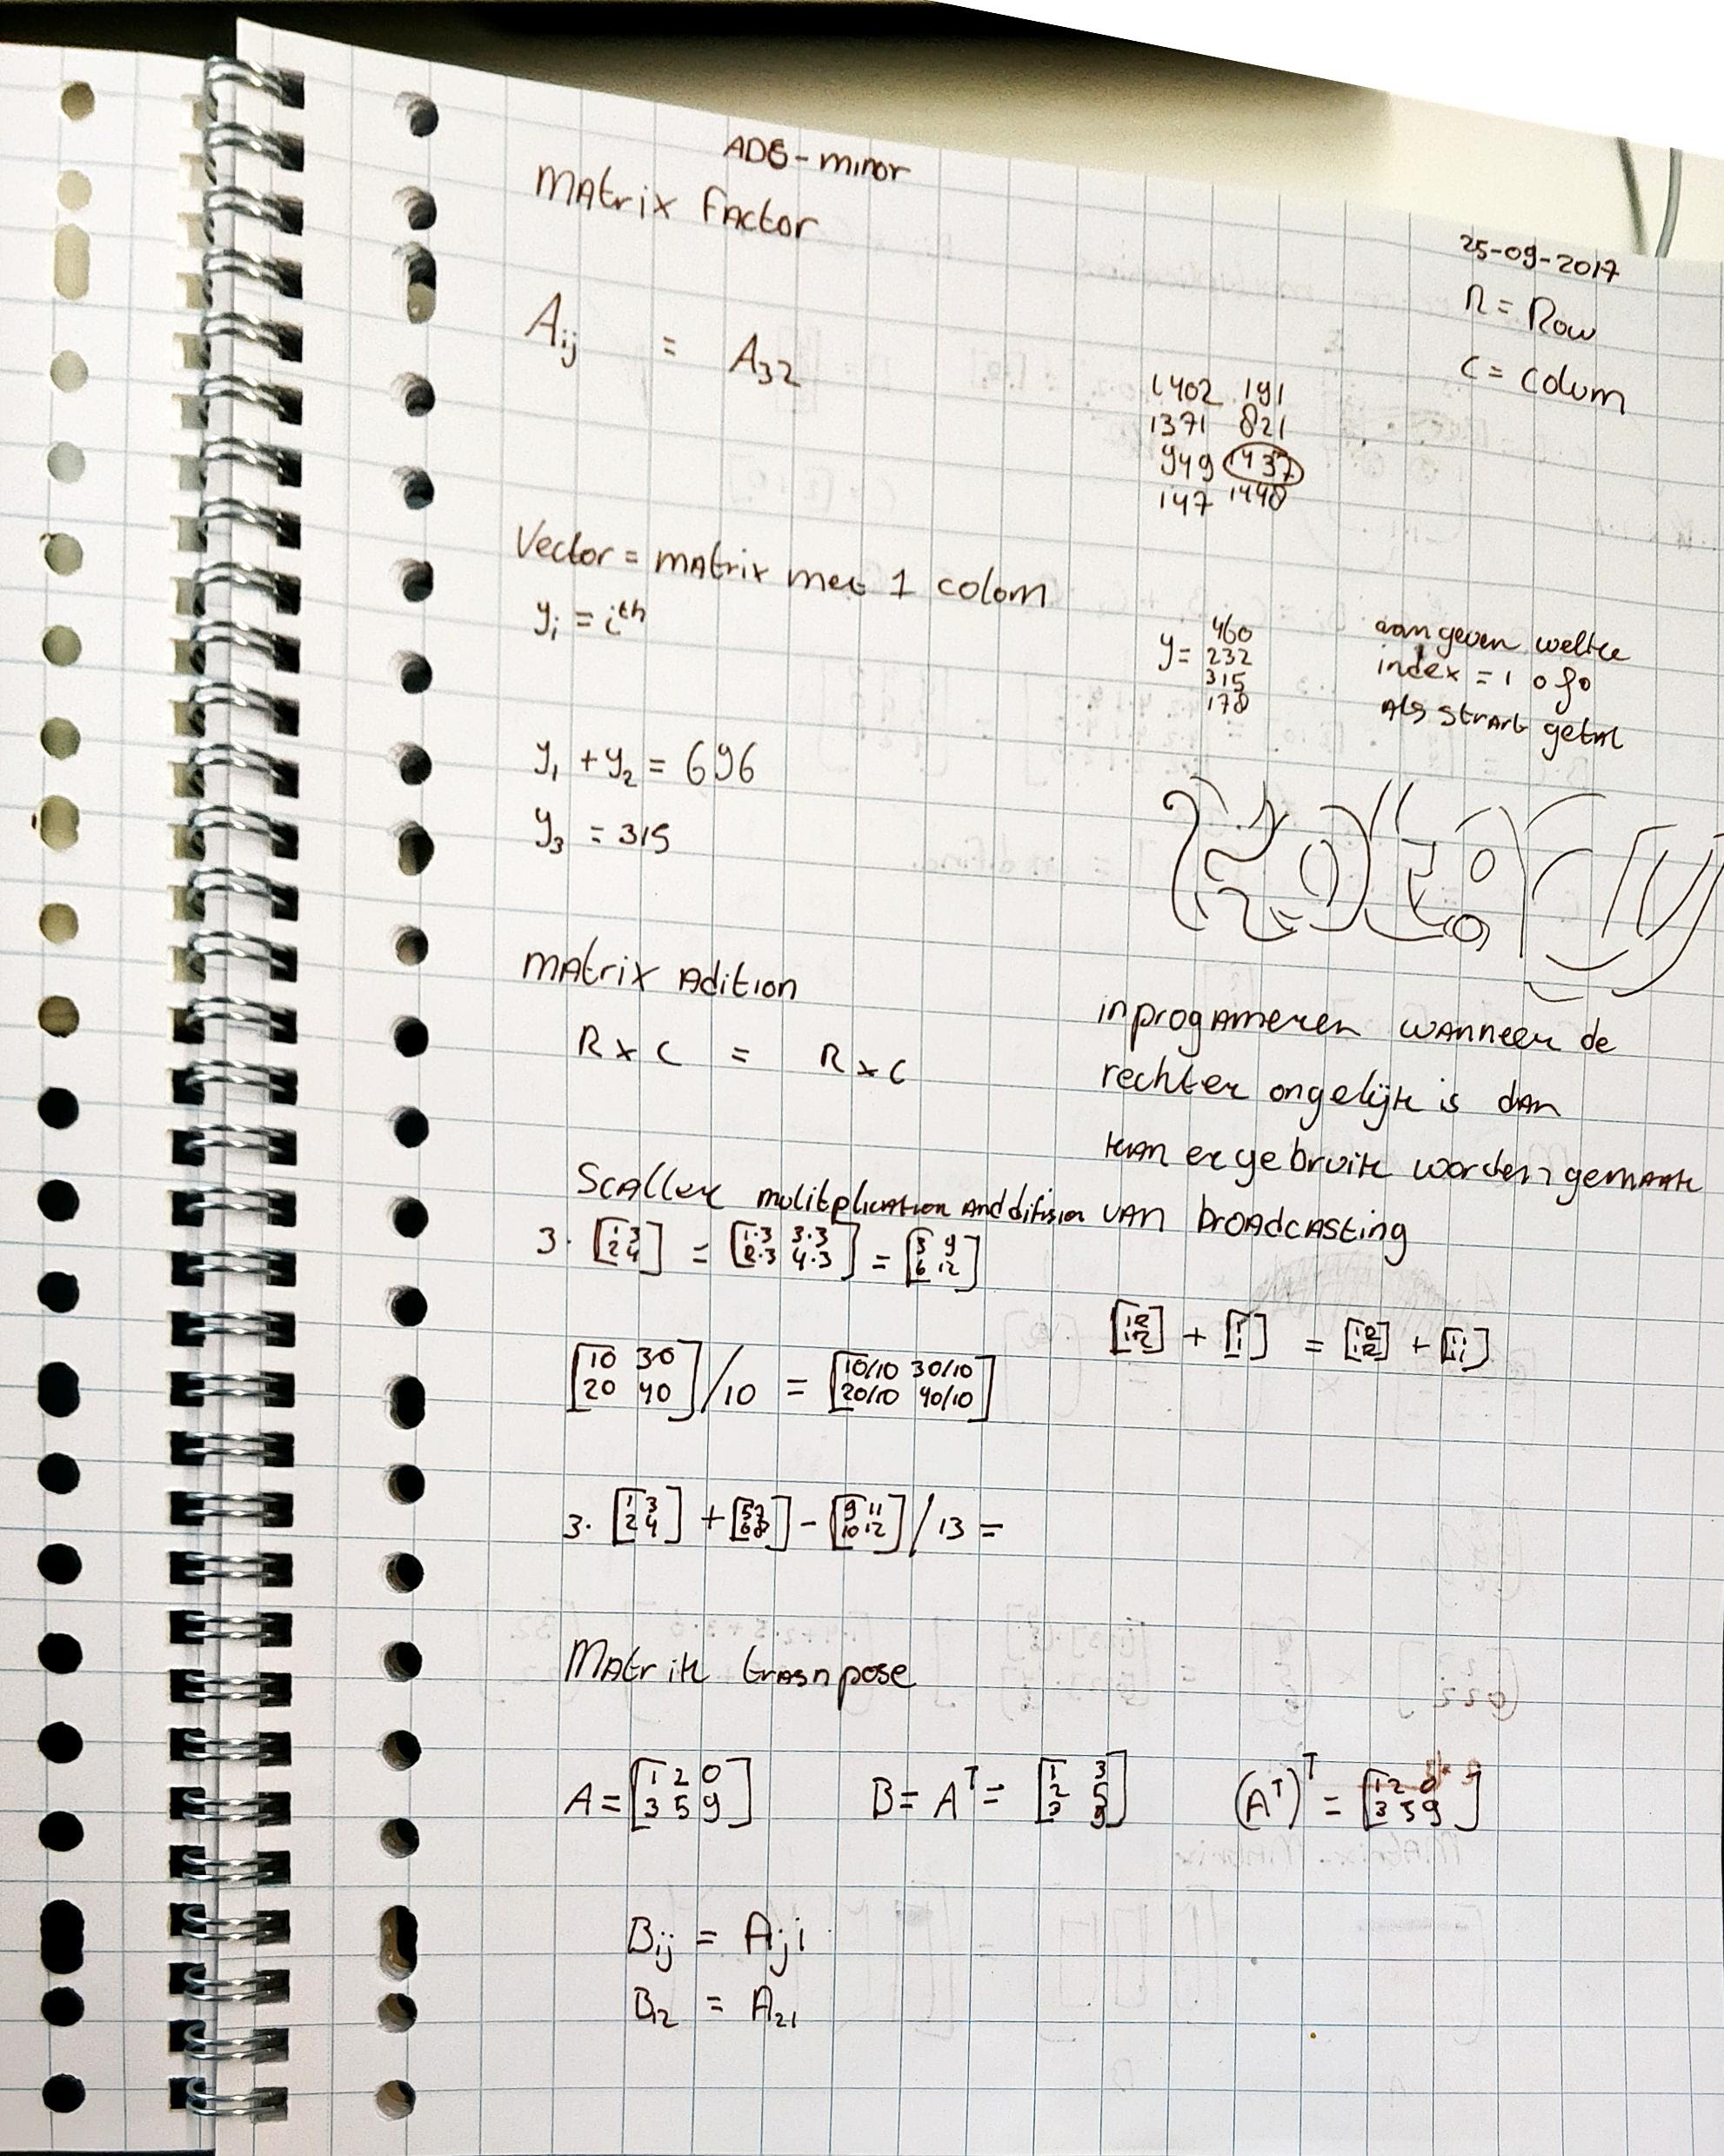 ADS-minor
Matrix Factor
25-09-2017
R = Row
C = Colum
Aij = A32
1402 191
1371 821
949 1437
147 1448
Vector = matrix met 1 colom
yi = ith
y =
460
232
315
178
aangeven welke
index = 1 of 0
als strart getal
y1 + y2 = 696
y3 = 315
matrix Adition
R x C = R x C
inprogrameren wanneer de
rechter ongelijk is dan
kan er gebruik worden gemaakt
van broadcasting
Scaller mulitplication and difision
3 · [1 3; 2 4] = [1·3 3·3; 2·3 4·3] = [3 9; 6 12]
[12; 12] + [1; 1] = [12; 12] + [11; 11]
[10 30; 20 40] / 10 = [10/10 30/10; 20/10 40/10]
3 · [1 3; 2 4] + [5 7; 6 8] - [9 11; 10 12] / 13 =
Matrik trasnpose
A = [1 2 0; 3 5 9]
B = A^T = [1 3; 2 5; 3 9]
(A^T)^T = [1 2 0; 3 5 9]
Bij = Aji
B12 = A21